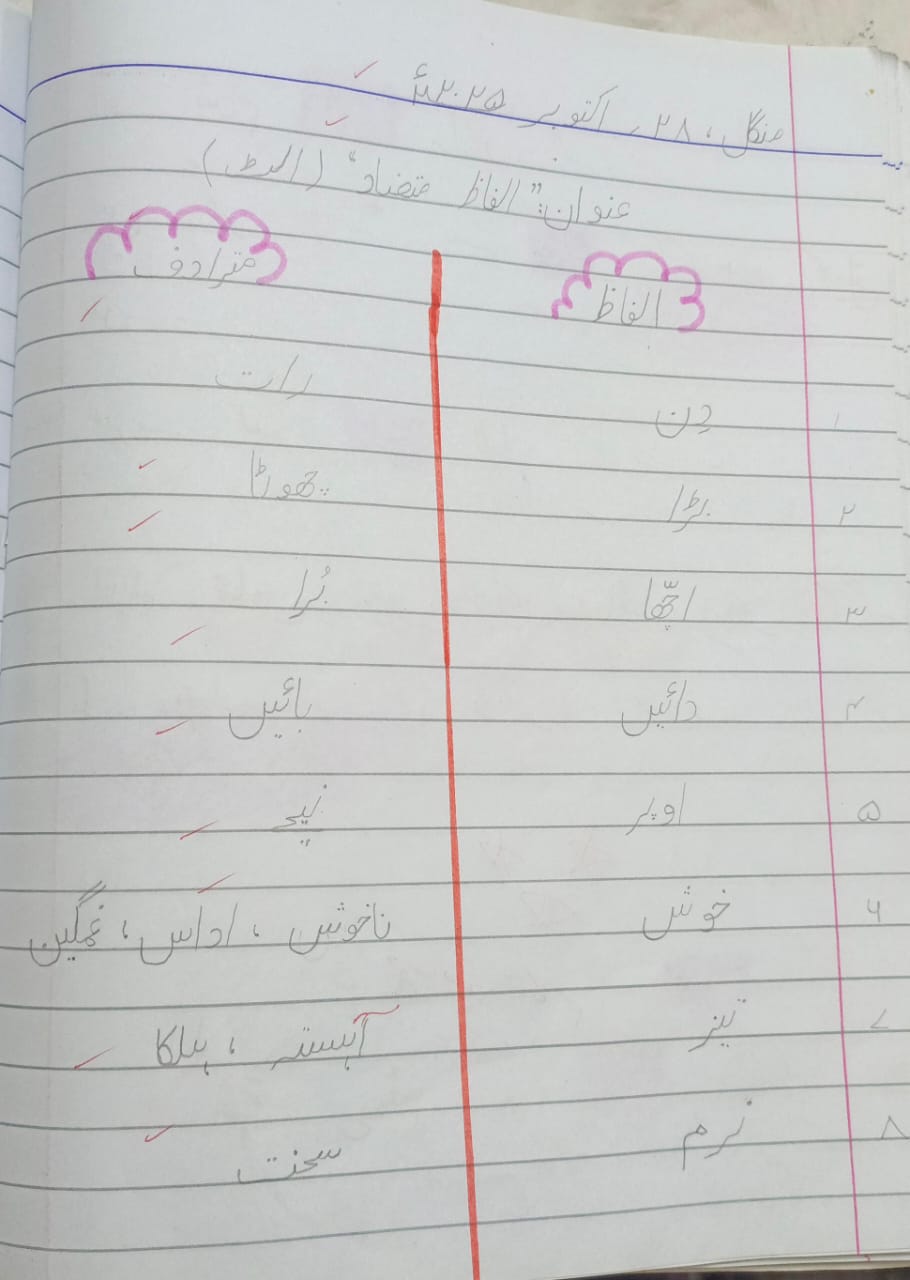 منگل، ۲۸ اکتوبر ۲۰۲۵ء
عنوان: "الفاظ متضاد" (الٹ)
الفاظ مترادف
۱ دِن رات
۲ بڑا چھوٹا
۳ اچّھا بُرا
۴ دائیں بائیں
۵ اوپر نیچے
۶ خوش ناخوش، اداس، غمگین
۷ تیز آہستہ، ہلکا
۸ نرم سخت